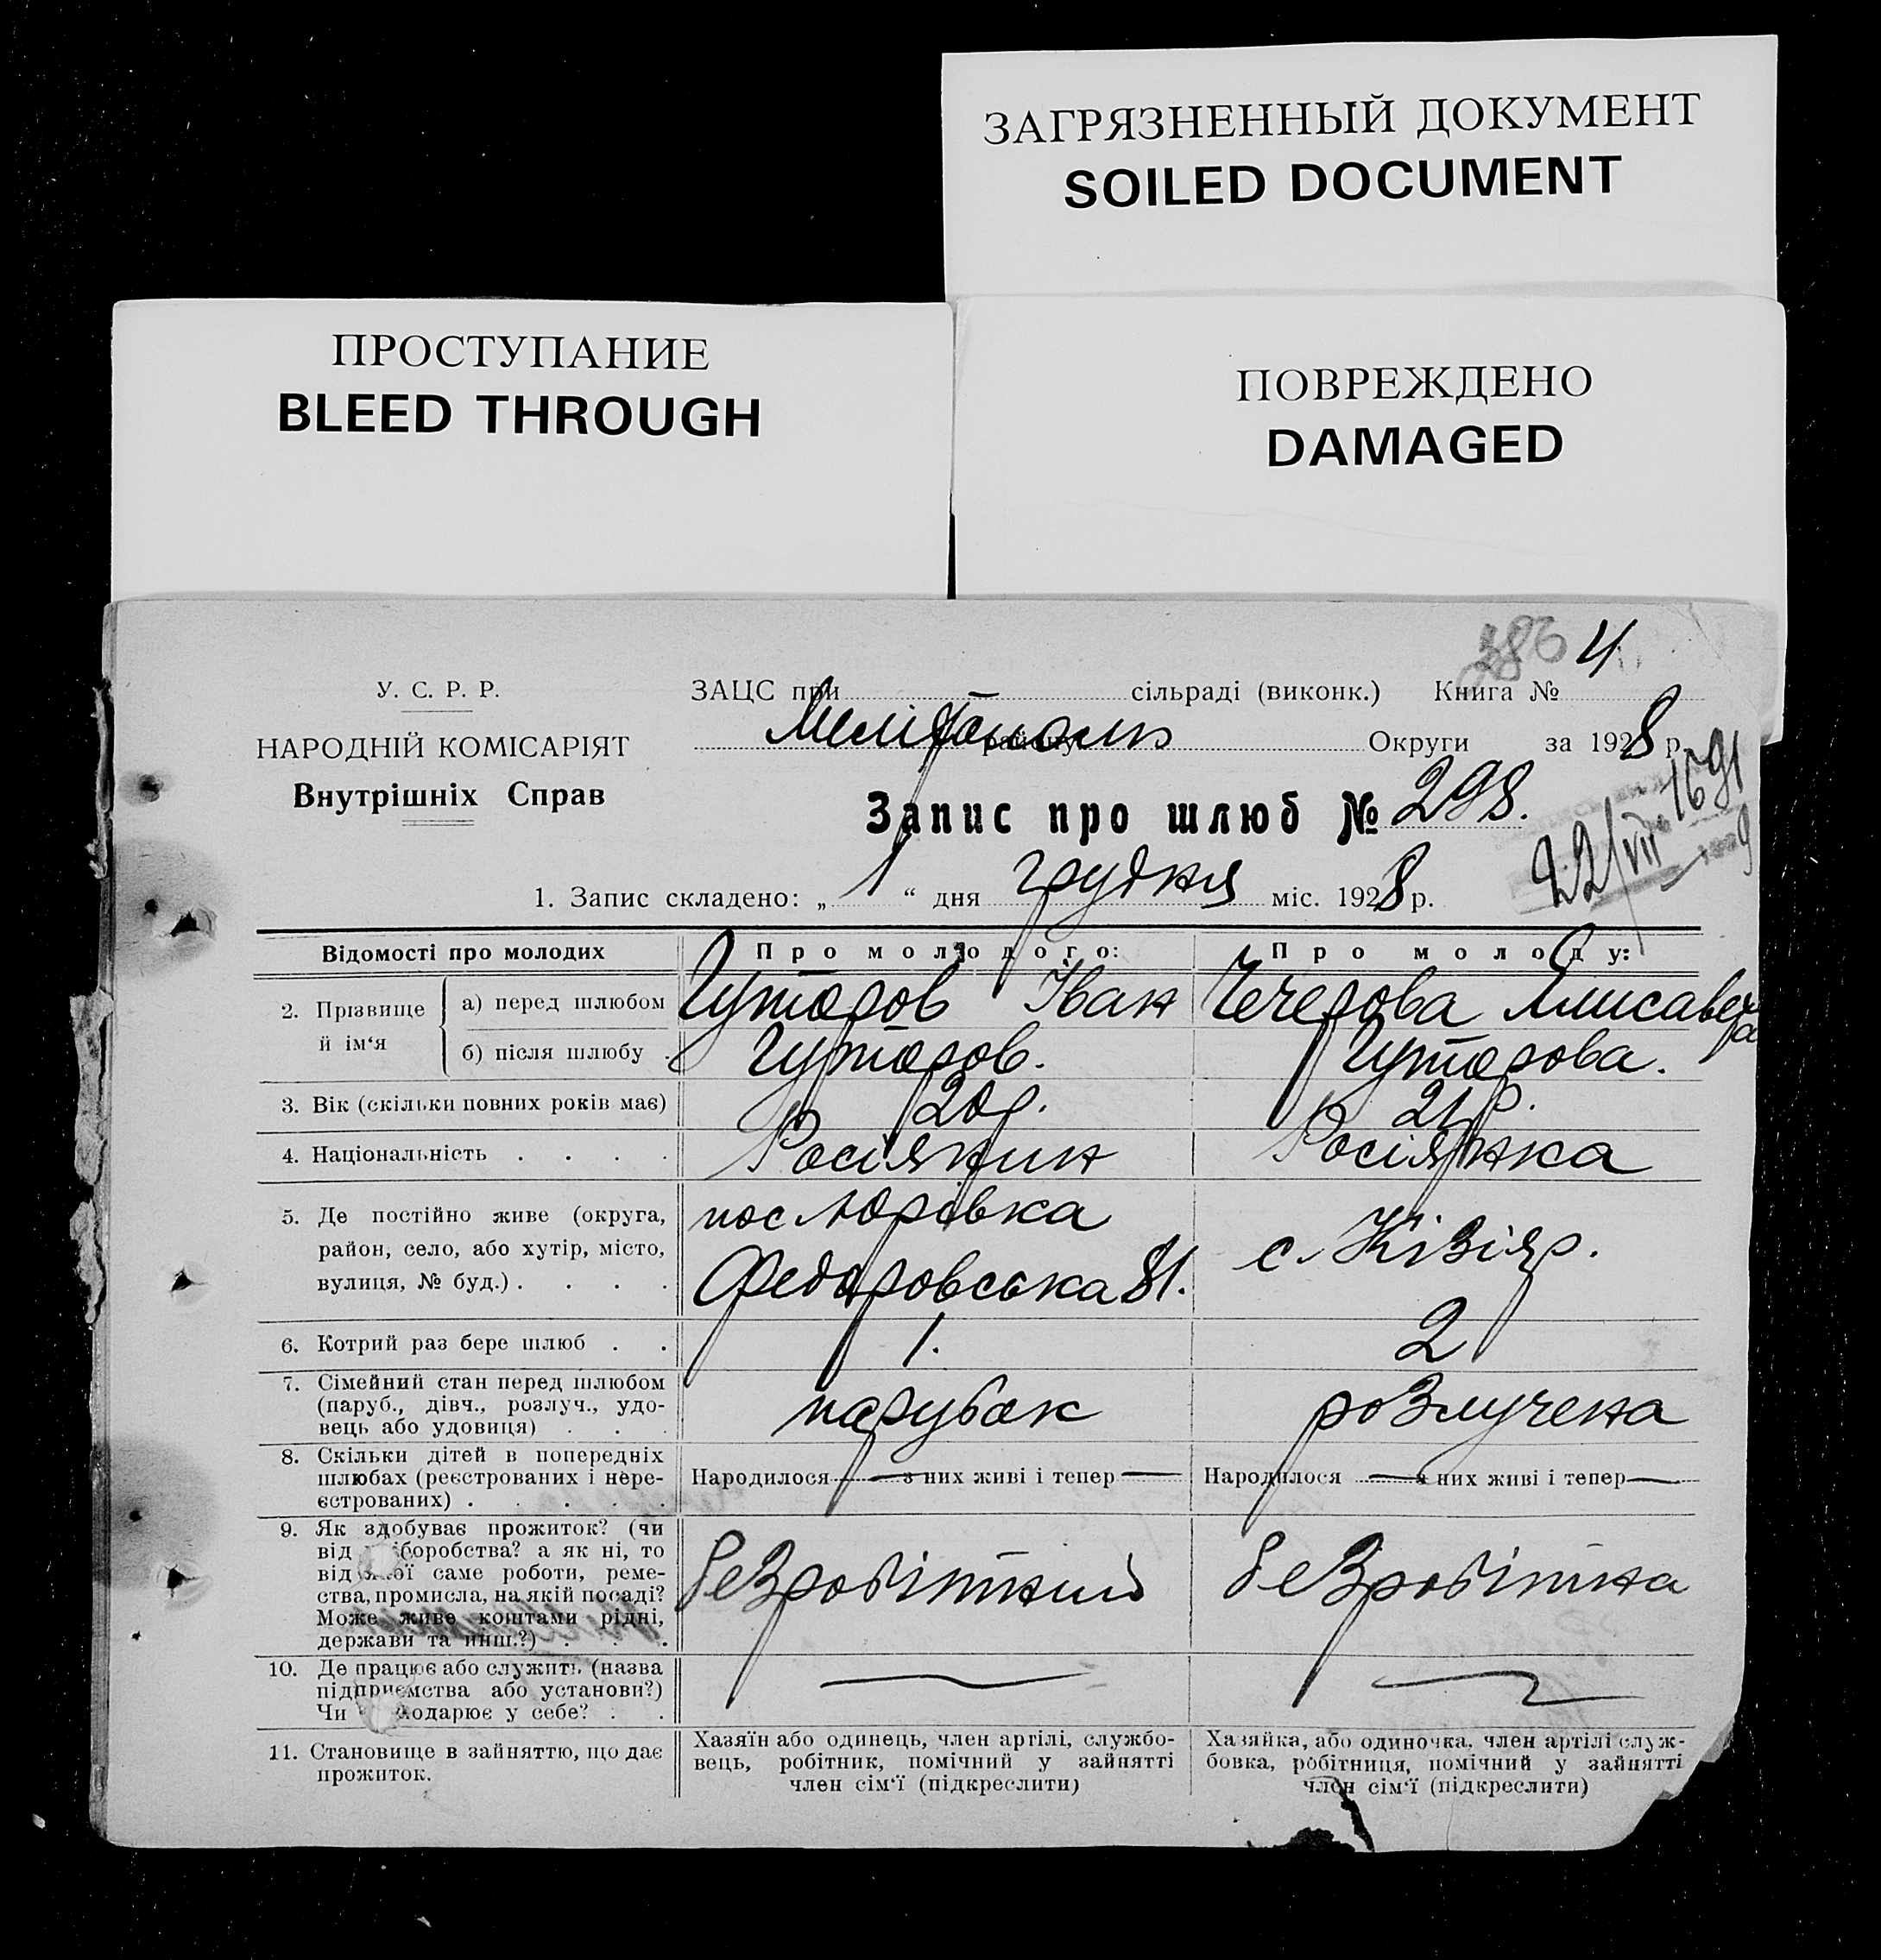 ЗАГРЯЗНЕННЫЙ ДОКУМЕНТ
SOILED DOCUMENT
ПРОСТУПАНИЕ
BLEED THROUGH
ПОВРЕЖДЕНО
DAMAGED
386 4
У. С. Р. Р.
НАРОДНІЙ КОМІСАРІЯТ
Внутрішніх Справ
ЗАЦС при — сільраді (виконк.) Книга №
Мелітополь району Округи за 1928 р.
Запис про шлюб № 298.
1691
22/VII
1. Запис складено: „ 1 “ дня грудня міс. 1928 р.
Відомості про молодих Про молодого: Про молоду:
2. Прізвище й ім‘я
а) перед шлюбом Гуторов Іван Чечерова Єлисавета
б) після шлюбу Гуторов. Гуторова.
3. Вік (скільки повних років має) 20 р. 21 р.
4. Національність Росіянин Росіянка
5. Де постійно живе (округа, район, село, або хутір, місто, вулиця, № буд.)
пос Юрівка
Федоровська 81.
с. Кізіяр.
6. Котрий раз бере шлюб 1. 2
7. Сімейний стан перед шлюбом (паруб., дівч., розлуч., удовець або удовиця) парубак розлучена
8. Скільки дітей в попередніх шлюбах (реєстрованих і нереєстрованих)
Народилося — з них живі і тепер — Народилося — з них живі і тепер —
9. Як здобуває прожиток? (чи
від боробства? а як ні, то
від якої саме роботи, реме-
ства, промисла, на якій посаді?
Може живе коштами рідні,
держави та инш.?)
безробітний безробітна
10. Де працює або служить (назва
підприємства або установи?)
Чи одарює у себе? — —
11. Становище в зайняттю, що дає
прожиток.
Хазяїн або одинець, член артілі, службо-
вець, робітник, помічний у зайнятті
член сім‘ї (підкреслити)
Хазяйка, або одиночка, член артілі служ-
бовка, робітниця, помічний у зайнятті
член сім‘ї (підкреслити)